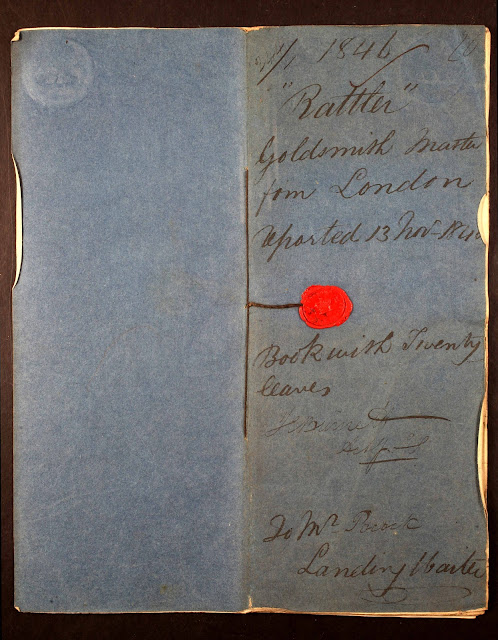 1846
"Rattler"
Goldsmith Master
from London
reported 13 Nov 184
Book with Twenty
leaves
To Mr Pocock
Landing Waiter